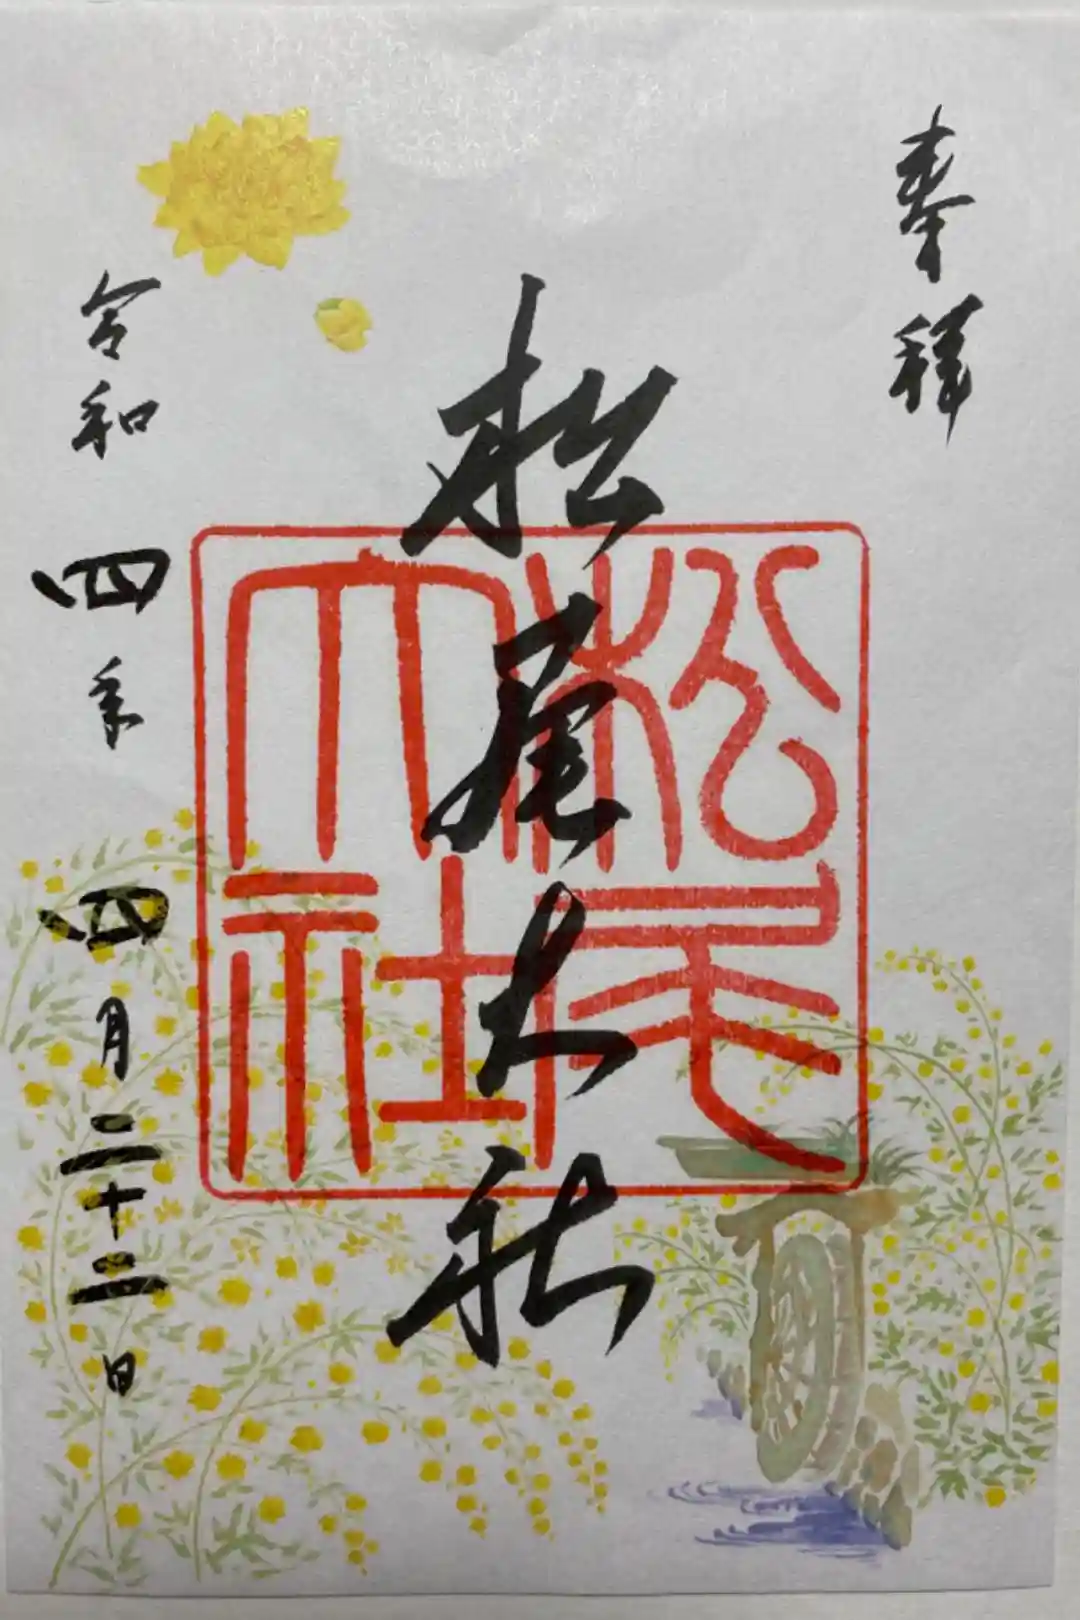 奉拝
松尾大社
松尾大社
令和四年四月二十三日